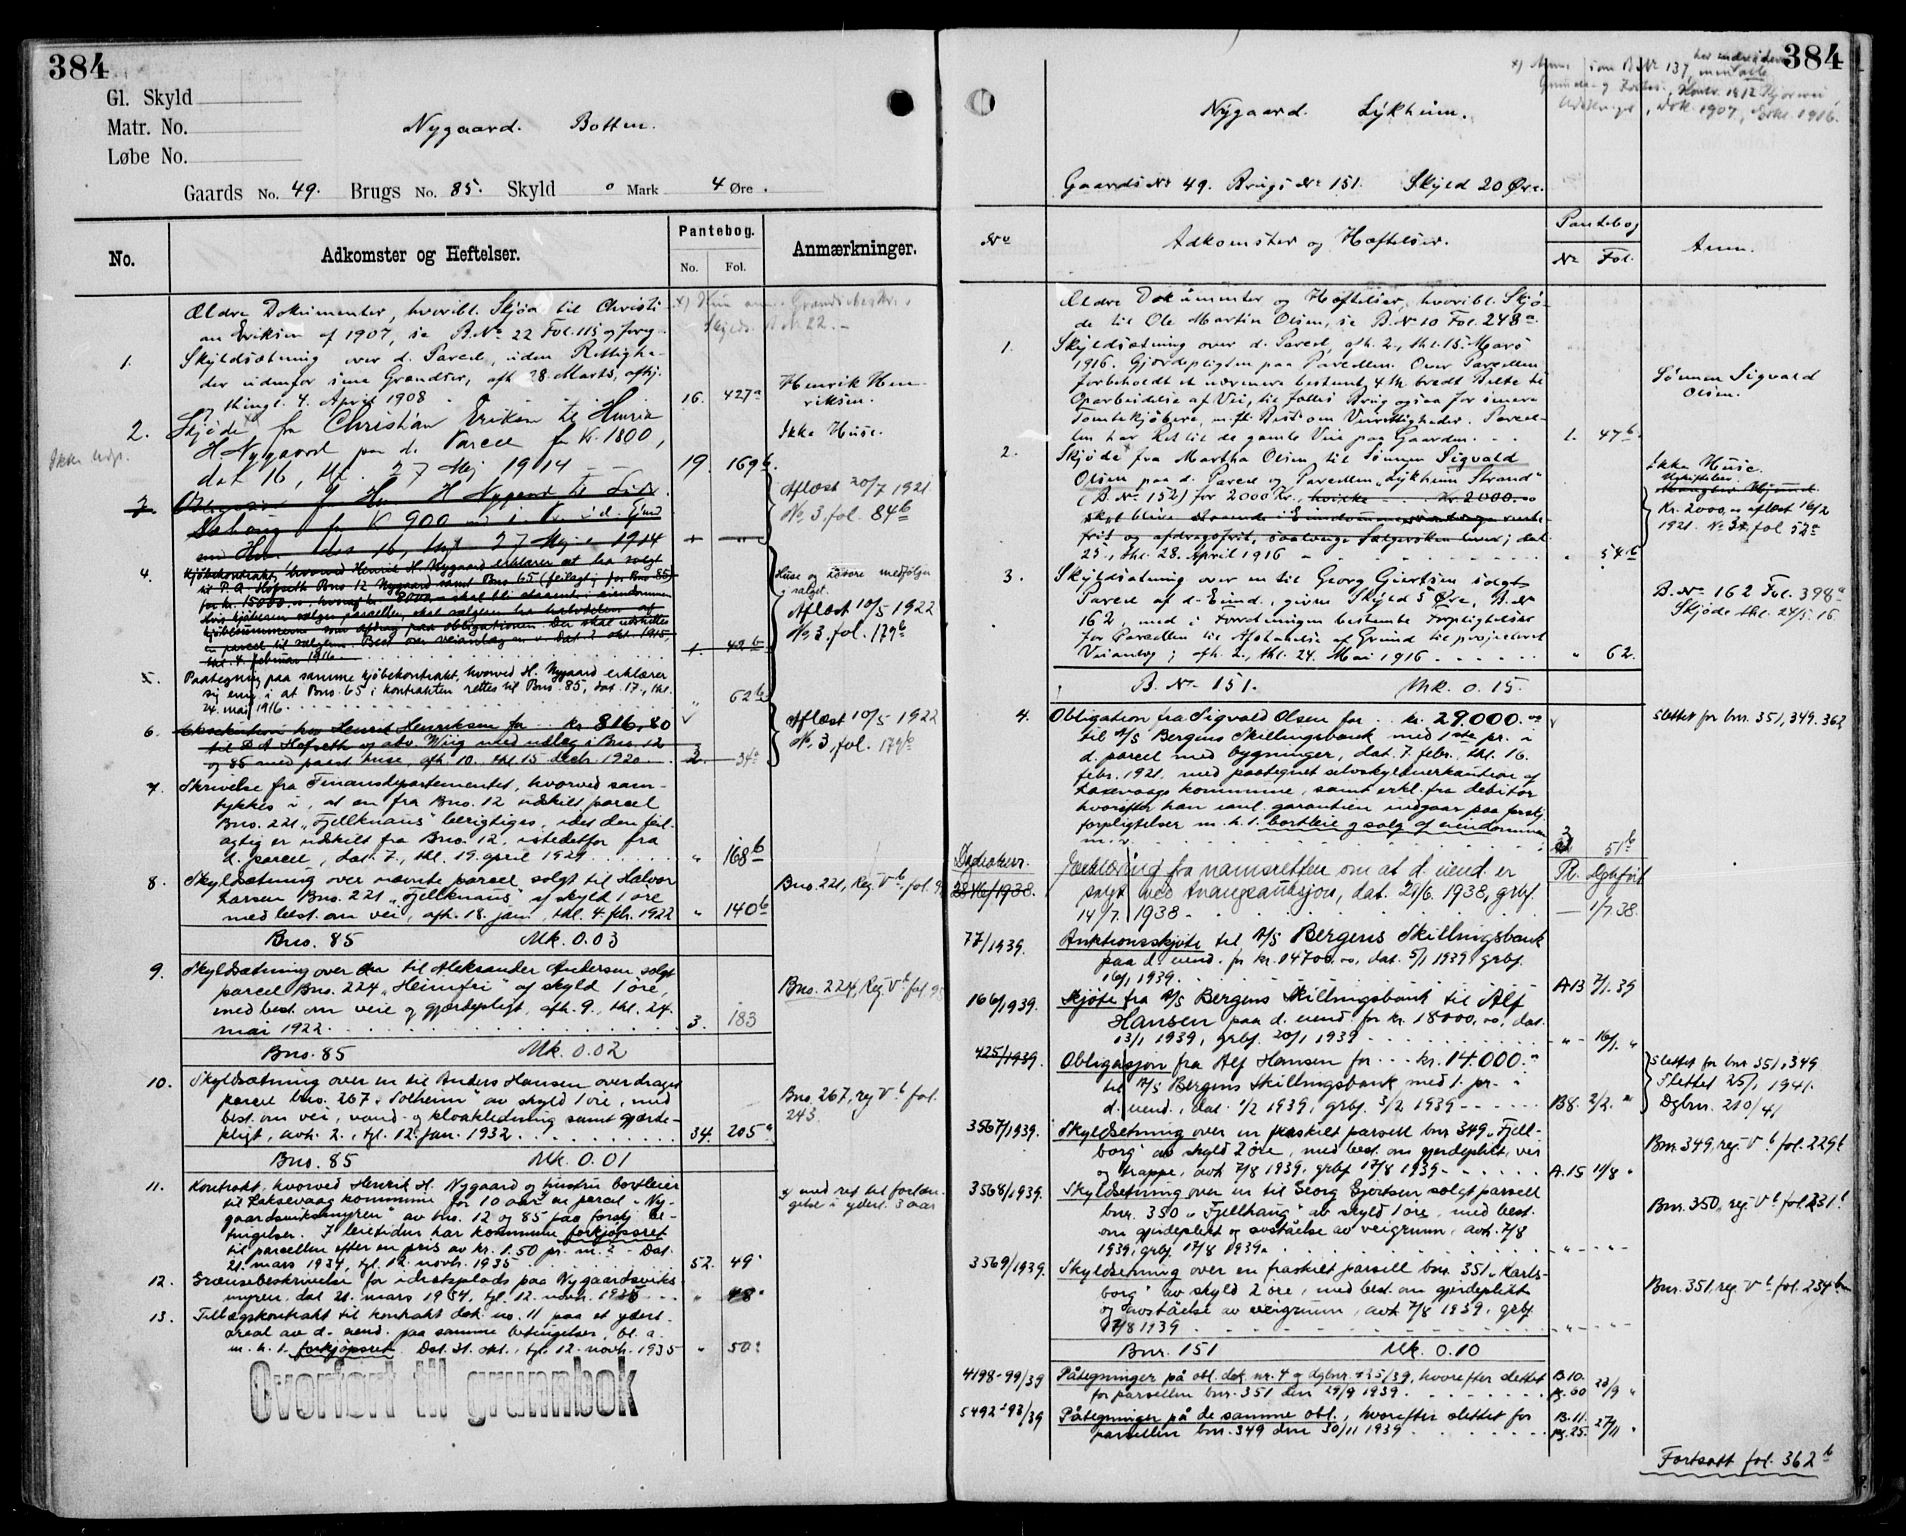 384
Gl. Skyld
Matr. No.
Løbe No.
Nygaard. Botten.
Gaards No. 49. Brugs No. 85. Skyld 0 Mark 4 Øre.
No. Adkomster og Heftelser. Pantebog. No. Fol. Anmærkninger.
Ældre Dokumenter, hvoribl. Skjøde til Christi-
an Eriksen af 1907, se B.No 22 Fol. 115 og foreg.
1. Skyldsætning over d. Parcel, uden Rettighe-
der udenfor sine Grændser, afh. 28. Marts, afhj.
thingl. 4. April 1908 16. 427a Henrik Hen-
riksen.
2. Skjøde fra Christian Eriksen til Henrik
H Nygaard paa d. Parcel for Kr. 1800,
dat 16, thl. 27 Maj 1914 19. 169b Ikke Huse.
3. Obligasjon fra Henr. H Nygaard til
for K 900 med i. Pr. i d. Eiend
med Huse dat 16, thgl 27 Maj 1914
Aflæst 20/7 1921
No. 3, fol. 84b
4. Kjøbekontrakt, hvorved Henrik H. Nygaard erklærer at ha solgt
til P. A. Hofseth Bno 12 Nygaard samt Bno 65 (feilagtig for Bno 85)
for kr. 15000.00 hvoraf kr. 8000.- skal bli staaende i eiendommen
Hvis kjøberen sælger parceller, skal sælgeren ha halvdelen af
kjøbesummerne som afdrag paa obligationen. Der skal utskilles
en parcel til sælgeren. Best. om veianlæg m. v. Dat 3 okt. 1915,
thl. 4. februar 1916. 1. 42b
Huse og Løsøre medfølger
i salget.
Aflæst 10/5 1922
No. 3. fol. 179b
5. Paategning paa samme kjøbekontrakt, hvorved H. Nygaard erklærer
sig enig i at Bno. 65 i kontrakten rettes til Bno. 85, dat. 17., thl.
24. mai 1916. " 62b
6. Eksekution hos Henrik Henriksen for kr. 816,80
til P. A. Hofseth og adv. Wiig med utlæg i Bno. 12
og 85 med paast. huse, afh. 10. thl 15 decb. 1920. 2. 34a
Aflæst 10/5 1922
No. 3, fol. 179b
7. Skrivelse fra Finansdepartementet, hvorved sam-
tykkes i, at en fra Bno. 12 utskilt parcel
Bno. 221 „Fjellknaus" berigtiges, idet den feil-
agtig er utskilt fra Bno. 12, istedetfor fra
d. parcel, dat. 7., thl. 19. april 1921 " 168b
8. Skyldsætning over nævnte parcel solgt til Halvor
Larsen Bno. 221 „Fjellknaus" af skyld 1 øre
med best. om vei, afh. 18. jan., thl. 4. feb. 1922 " 140b Bno. 221, Reg. Vb. fol. 9
Bno. 85 Mk. 0.03
9. Skyldsætning over en til Aleksander Andersen solgt
parcel Bno. 224 „Heimfri" af skyld 1 øre,
med best. om veie og gjærdepligt, afh. 9., thl. 24.
mai 1922. 3. 183 Bno. 224, Reg. Vb fol 95
Bno. 85 Mk. 0.02
10. Skyldsætning over en til Anders Hansen overdraget
parcel bno. 267 „Solheim" av skyld 1 øre, med
best. om vei, vand- og kloakledning samt gjærde-
pligt, avh. 2., tgl. 12. jan. 1932. 34. 205a Bno. 267, reg Vb fol.
243.
Bno. 85 Mk. 0.01
11. Kontrakt, hvorved Henrik H. Nygaard og hustru bortleier
til Laksevaag kommune for 10 aar x) en parcel „Ny-
gaardsviksmyren" av bno. 12 og 85 paa forskj. be-
tingelser. I leietiden har kommunen forkjøpsret
til parcellen efter en pris av kr. 1.50 pr. m.2 - Dat.
21. mars 1934, tgl. 12. novb. 1935 52. 49a
x) med ret til forlæn-
gelse i ydterl. 3 aar
12. Grænsebeskrivelse for idrætsplads paa Nygaardsviks-
myren, dat 21. mars 1934, tgl. 12. novb. 1935 " 48a
13. Tillægskontrakt til kontrakt dok. no. 11 paa et yderl.
areal av d. eiend. paa samme betingelser, bl. a.
m. h. t. forkjøpsret. Dat. 31. okt., tgl. 12. novb. 1935 " 50a
Overført til grunnbok
384
Nygaard. Lykheim.
Gaards No 49. Brugs No 151. Skyld 20 Øre.
No Adkomster og Hæftelser. Pantebog No Fol. Anm.
Ældre Dokumenter og Hæftelser, hvoribl. Skjø-
de til Ole Martin Olsen, se B.No 10 Fol. 248a.
1. Skyldsætning over d. Parcel, afh. 2., thl. 15. Mars
1916. Gjærdepligten paa Parcellen. Over Parcellen
forbeholdt et nærmere bestemt, 4 M. bredt Bælte til
Oparbeidelse af Vei, til fælles Brug ogsaa for senere
Tomtekjøbere, m. fl. Best. om Veirettigheder. Parcel-
len har Ret til de gamle Veie paa Gaarden. 1. 47b.
Sønnen Sigvald
Olsen.
2. Skjøde fra Martha Olsen til Sønnen Sigvald
Olsen paa d. Parcel og Parcellen „Lykheim Strand"
(B.No 152) for 2000 Kr., hvorav Kr. 2000.00
skal blive staaende i Eiendommene rente-
frit og afdragsfrit, saalænge Sælgersken lever; dat.
25., thl. 28. April 1916 " 54b
Ikke Huse.
Kr. 2000,00 aflæst 16/2
1921. No 32, fol 52a
3. Skyldsætning over en til Georg Giertsen solgt
Parcel af d. Eiend., givne Skyld 5 Øre, B.No
162, med i Forretningen bestemte Forpligtelser
for Parcellen til Afstaaelse af Grund til projecteret
Veianlæg; afh. 2., thl. 24. Mai 1916 " 62.
B.No. 162 Fol. 398a
Skjøde thl. 24/5. 16.
B. No. 151. Mk. 0.15.
4. Obligation fra Sigvald Olsen for kr. 29.000.00
til A/S Bergens Skillingsbank med 1ste pr. i
d. parcel med bygninger, dat. 7. febr., thl. 16.
febr. 1921, med paategnet selvskyldnerkaution af
Laxevaags kommune, samt erkl. fra debitor
hvorefter han ianl. garantien indgaar paa forskj.
forpligtelser m. h. t. bortleie og salg af eiendommen
m. v. 51b
slettet for bnr. 351, 349. 362
Erklæring fra namsretten om at d. eiend. er
solgt ved tvangsauksjon, dat. 21/6. 1938, grbf.
14/7. 1938 1/7. 38.
77/1939. Auktionsskjøte til A/S Bergens Skillingsbank
paa d. eiend. for kr. 14700.00, dat. 5/1 1939, grbf.
16/1 1939. A13 7/1. 39
166/1939. Skjøte fra A/S Bergens Skillingsbank til Alf
Hansen paa d. eiend. for kr. 18000,00, dat.
13/1 1939, grbf. 20/1 1939 " 16/1. "
425/1939. Obligasjon fra Alf Hansen for kr. 14.000.00
til A/S Bergens Skillingsbank med 1. pr. i
d. eiend., dat. 1/2 1939, grbf. 3/2 1939 B8. 2/2. "
slettet for bnr 351, 349
Slettet 25/1 1941.
Dgbnr. 210/41
3567/1939. Skyldsetning over en fraskilt parsell bnr 349 „Fjell-
borg" av skyld 2 øre, med best. om gjerdeplikt, vei
og trappe, avh 7/8 1939, grbf 17/8 1939 A.15 11/8 " Bnr. 349, reg. Vb fol. 229b
3568/1939. Skyldsetning over en til Georg Gjertsen solgt parsell
bnr. 350 „Fjellhaug" av skyld 1 øre, med best.
om gjerdeplikt og avståelse av veigrunn, avh. 7/8
1939, grbf. 17/8 1939. Bnr. 350, reg. Vb fol. 231b
3569/1939. Skyldsetning over en fraskilt parsell bnr. 351 „Karls-
borg" av skyld 2 øre, med best. om gjerdeplikt
og avståelse av veigrunn, avh 7/8 1939, grbf.
17/8 1939 Bnr. 351, reg. Vb fol. 234b
Bnr. 151 Mk. 0.10
4198-99/39 Påtegninger på obl. dok. nr. 4 og dgbnr. 425/39, hvorefter slettet
for parsellen bnr. 351 den 29/9 1939. B.10. pg. 60 28/9 "
5492-93/39 Påtegninger på de samme obl., hvorefter slettet for
parsellen bnr. 349 den 30/11 1939 B.11. pg. 25. 27/11 "
Fortsatt fol. 362b